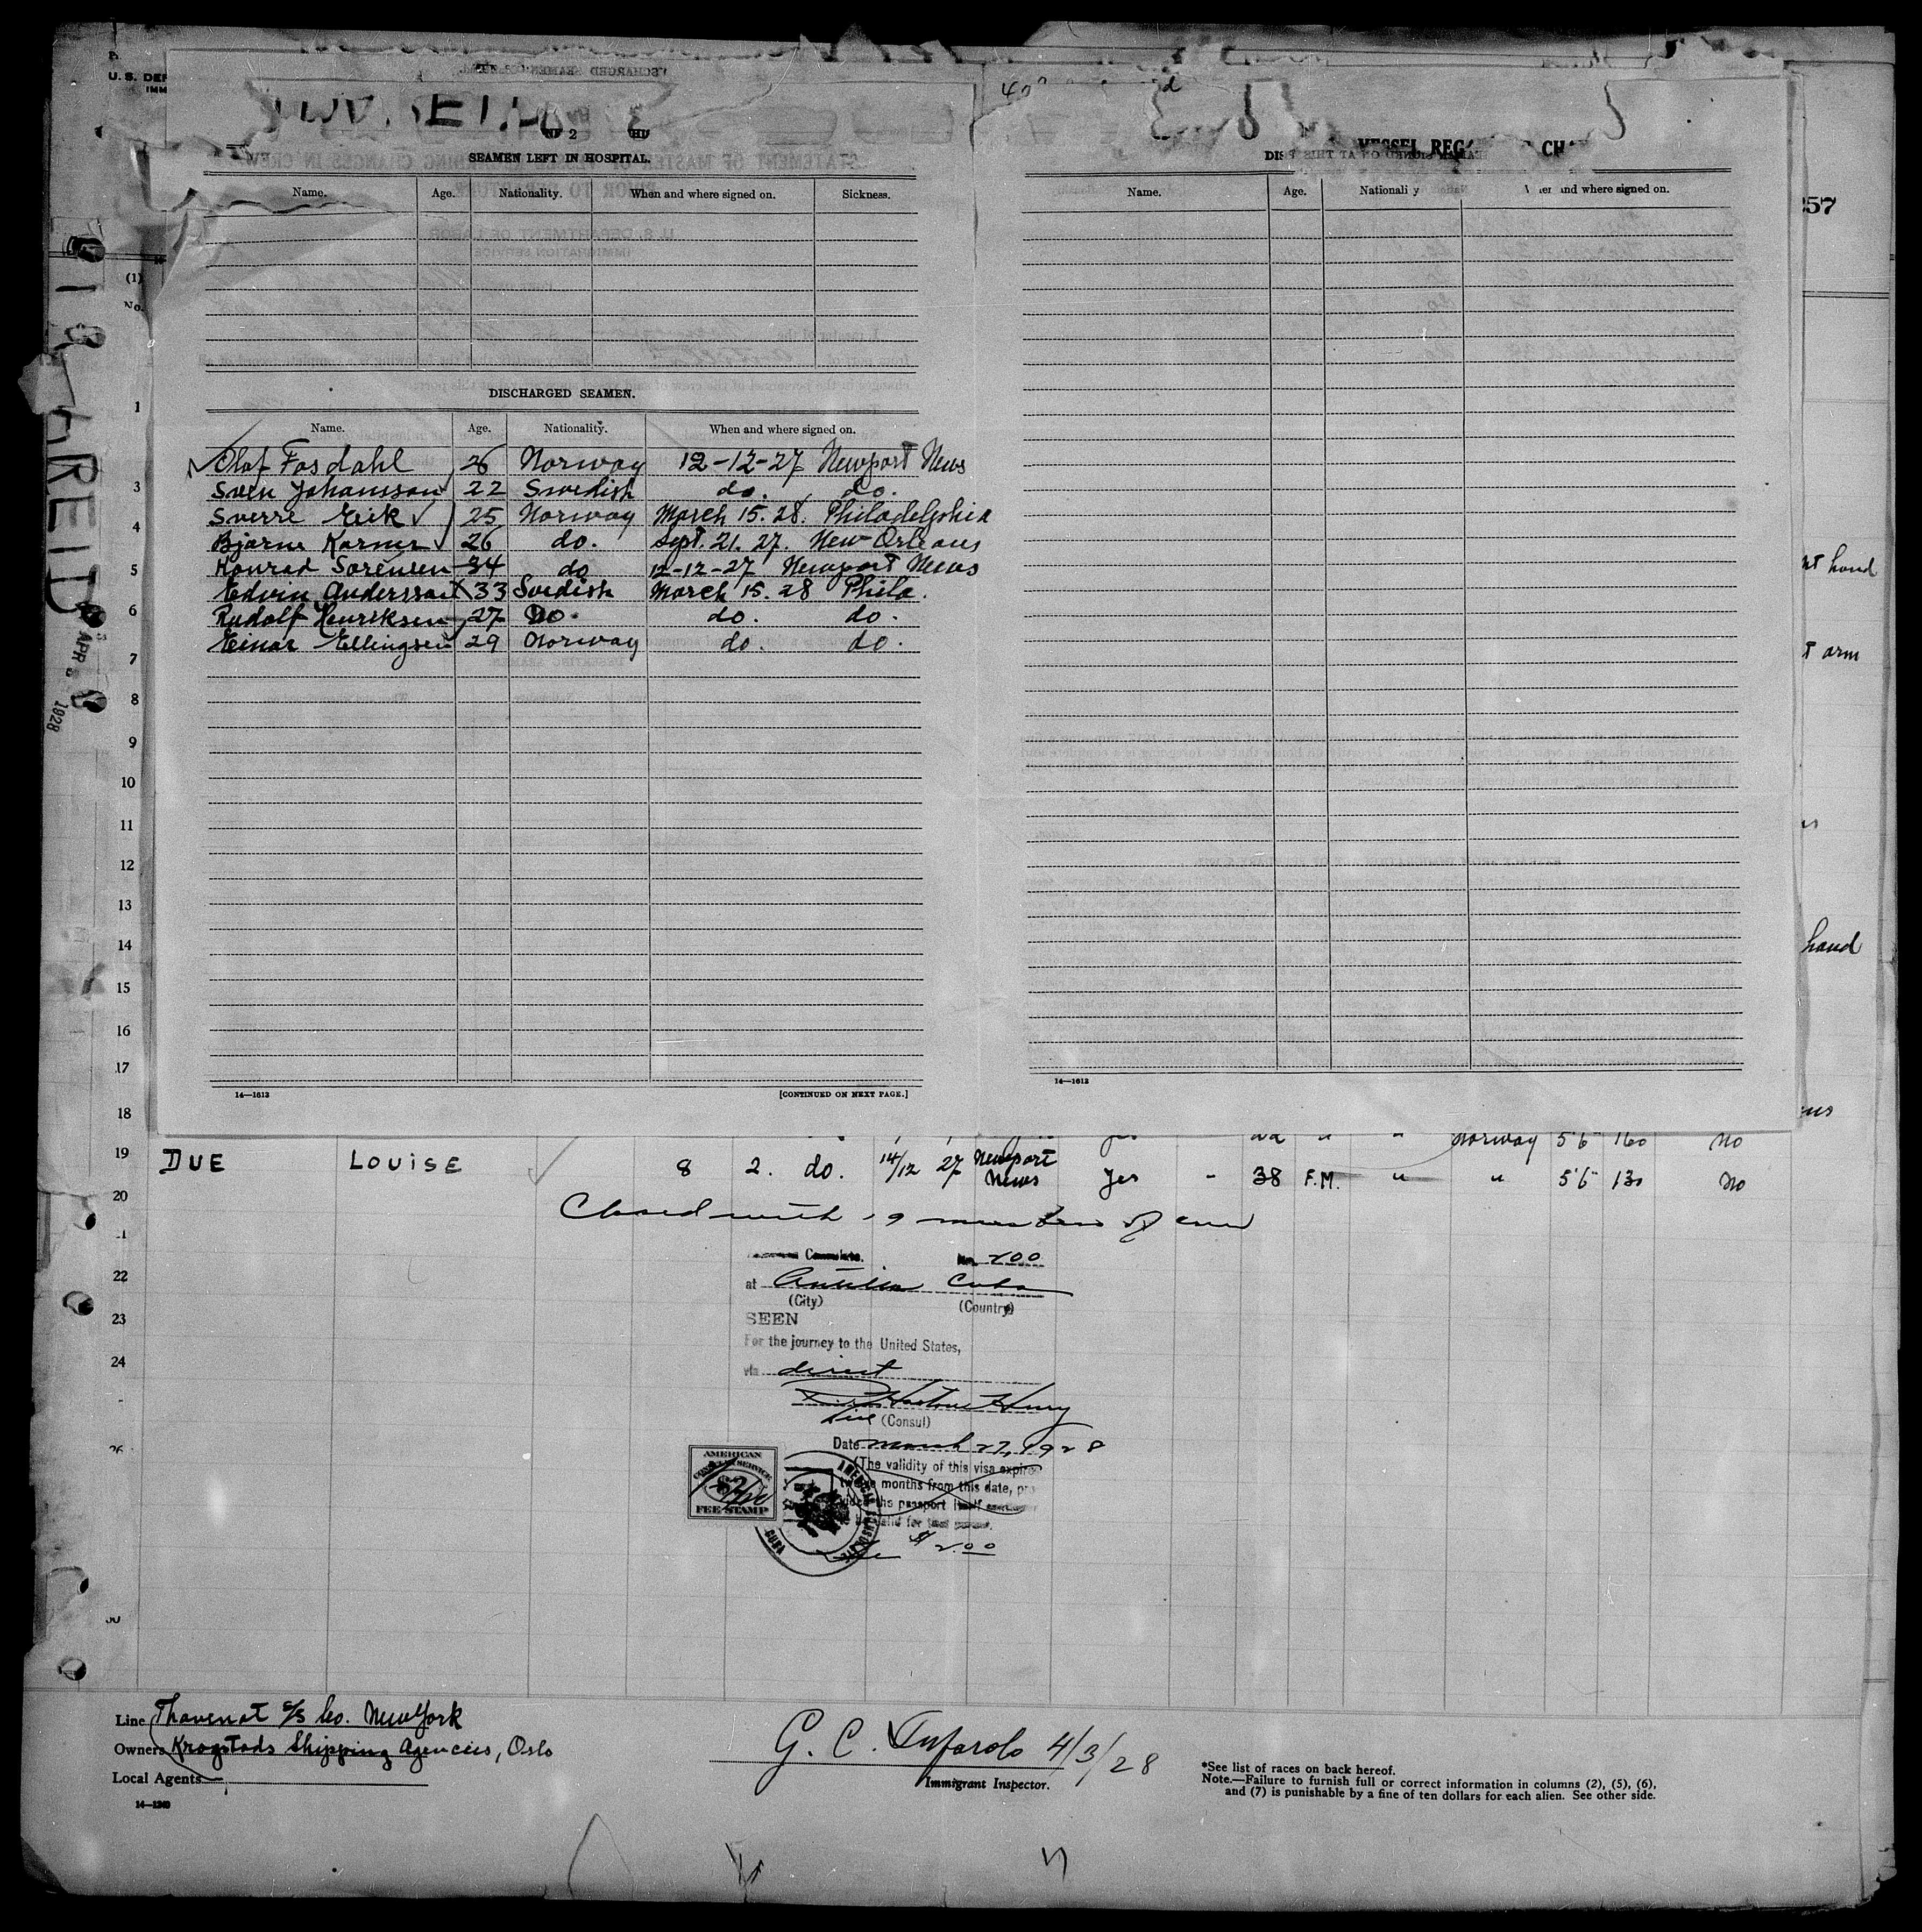 U. S. DEP
IMM
257
SEAMEN LEFT IN HOSPITAL.
Name. Age. Nationality. When and where signed on. Sickness.
DISCHARGED SEAMEN.
Name. Age. Nationality. When and where signed on.
Olaf Fosdahl 26 Norway 12-12-27 Newport News
Sven Johansson 22 Swedish do. do.
Sverre Eeik 25 Norway March 15. 28. Philadelphia
Bjarne Karner 26 do. Sept. 21. 27. New Orleans
Konrad Sorensen 34 do 12-12-27 Newport News
Edvin Andersson 33 Swedish March 15. 28 Phila.
Rudolf Henriksen 27 Do. do. do.
Einar Ellingsen 29 Norway do. do.
14—1613 [CONTINUED ON NEXT PAGE.]
VESSEL REG
Name. Age. When and where signed on.
14—1613
(1)
No.
1
3
4
5
6
7
8
9
10
11
12
13
14
15
16
17
18
19
20
22
23
24
REID
APR
1928
hand
arm
hand
Norway 5'6 160 No
DUE LOUISE 8 2. do. 14/12 27 Newport News Yes - 38 F.M. " " 5'6" 130 No
Closed with 19 members of crew
Consulate. No. 200
at Antilla Cuba
(City) (Country)
SEEN
For the journey to the United States,
via direct
Vice (Consul)
Date March 27, 1928
(The validity of this visa expires
months from this date, pro
the passport itself
valid for
$2.00
AMERICAN
CONSULAR SERVICE
FEE STAMP
AMERICAN CONSULATE
CUBA
Line Thavenot S/S Co. New York
Owners Krogstads Shipping Agencies, Oslo
Local Agents
14—1240
G. C. Tufarolo 4/3/28
Immigrant Inspector.
*See list of races on back hereof.
Note.—Failure to furnish full or correct information in columns (2), (5), (6),
and (7) is punishable by a fine of ten dollars for each alien. See other side.